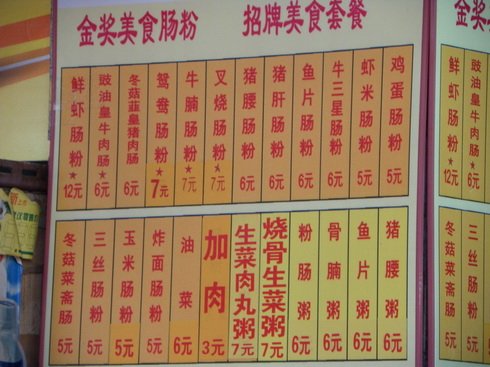 金奖美食肠粉 招牌美食套餐
鲜虾肠粉★12元
豉油皇牛肉肠6元
冬菇韭皇猪肉肠6元
鸳鸯肠粉★7元
牛腩肠粉★7元
叉烧肠粉★7元
猪腰肠粉6元
猪肝肠粉6元
鱼片肠粉6元
牛三星肠粉6元
虾米肠粉5元
鸡蛋肠粉5元
冬菇菜斋肠5元
三丝肠粉5元
玉米肠粉5元
炸面肠粉5元
油菜6元
加肉3元
生菜肉丸粥7元
烧骨生菜粥7元
粉肠粥6元
骨腩粥6元
鱼片粥6元
猪腰粥5元
金奖
鲜虾肠粉★12元
豉油皇牛肉肠6元
冬菇菜斋肠5元
三丝肠粉5元